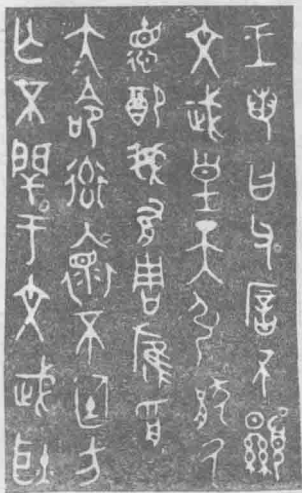 王若曰父㕌不顯
文武皇天引猒氒
德配我有周膺受
大命衒褱不廷方
亡不閈于文武耿